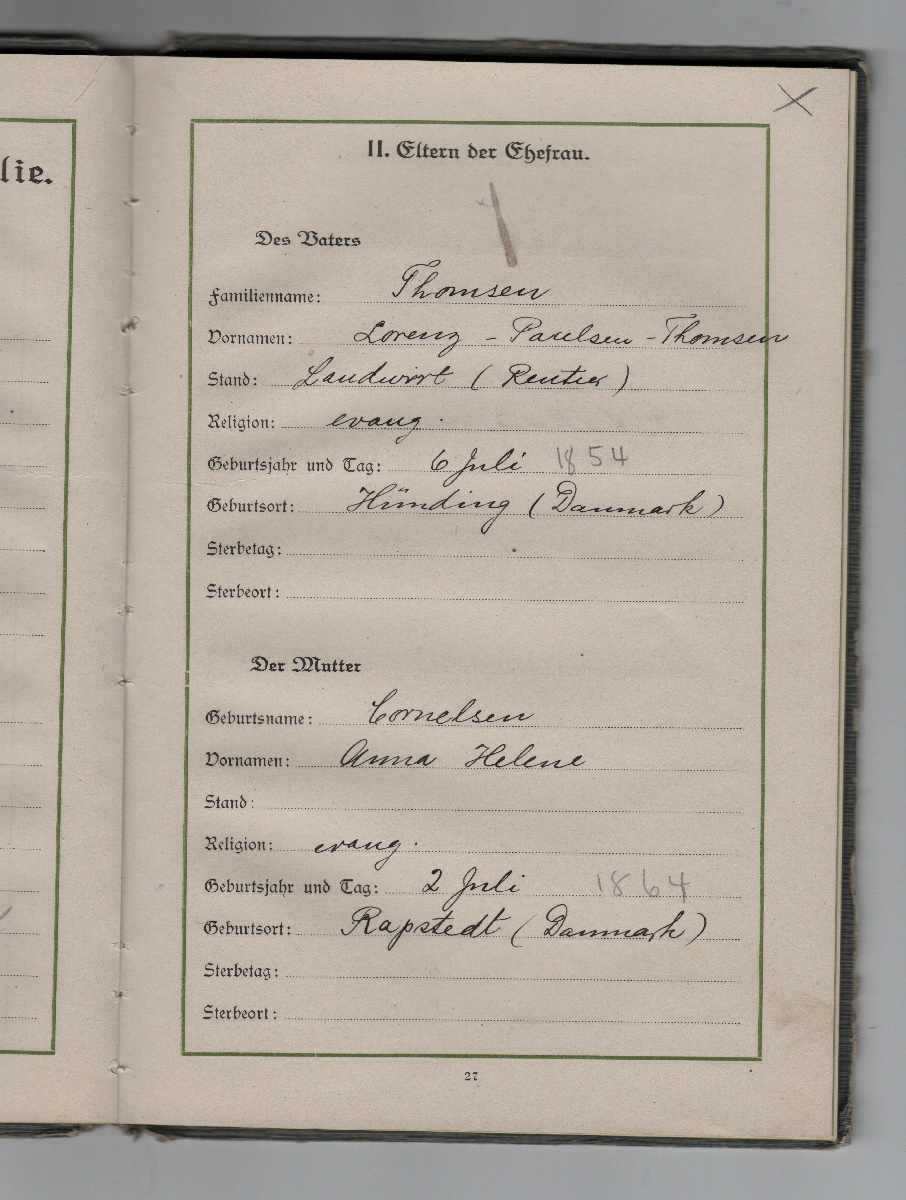 lie.
II. Eltern der Ehefrau.
Des Vaters
Familienname: Thomsen
Vornamen: Lorenz - Paulsen - Thomsen
Stand: Landwirt (Rentier)
Religion: evang.
Geburtsjahr und Tag: 6 Juli 1854
Geburtsort: Hünding (Danmark)
Sterbetag:
Sterbeort:
Der Mutter
Geburtsname: Cornelsen
Vornamen: Anna Helene
Stand:
Religion: evang.
Geburtsjahr und Tag: 2 Juli 1864
Geburtsort: Rapstedt (Danmark)
Sterbetag:
Sterbeort:
27